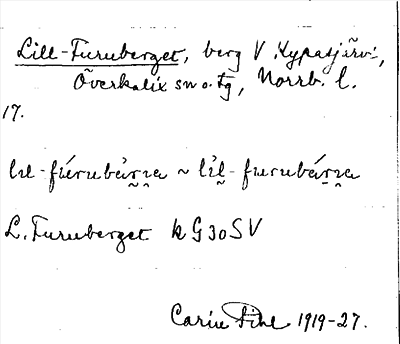 Lill-Furuberget, berg V. Kypasjärvi,
Överkalix sn o. tg, Norrb. l.
17.
lɩl-fúrubȧ́rɩa ~ lɩ̇l-furubárɩa
L. Furuberget k G30SV
Carin Pihl 1919-27.